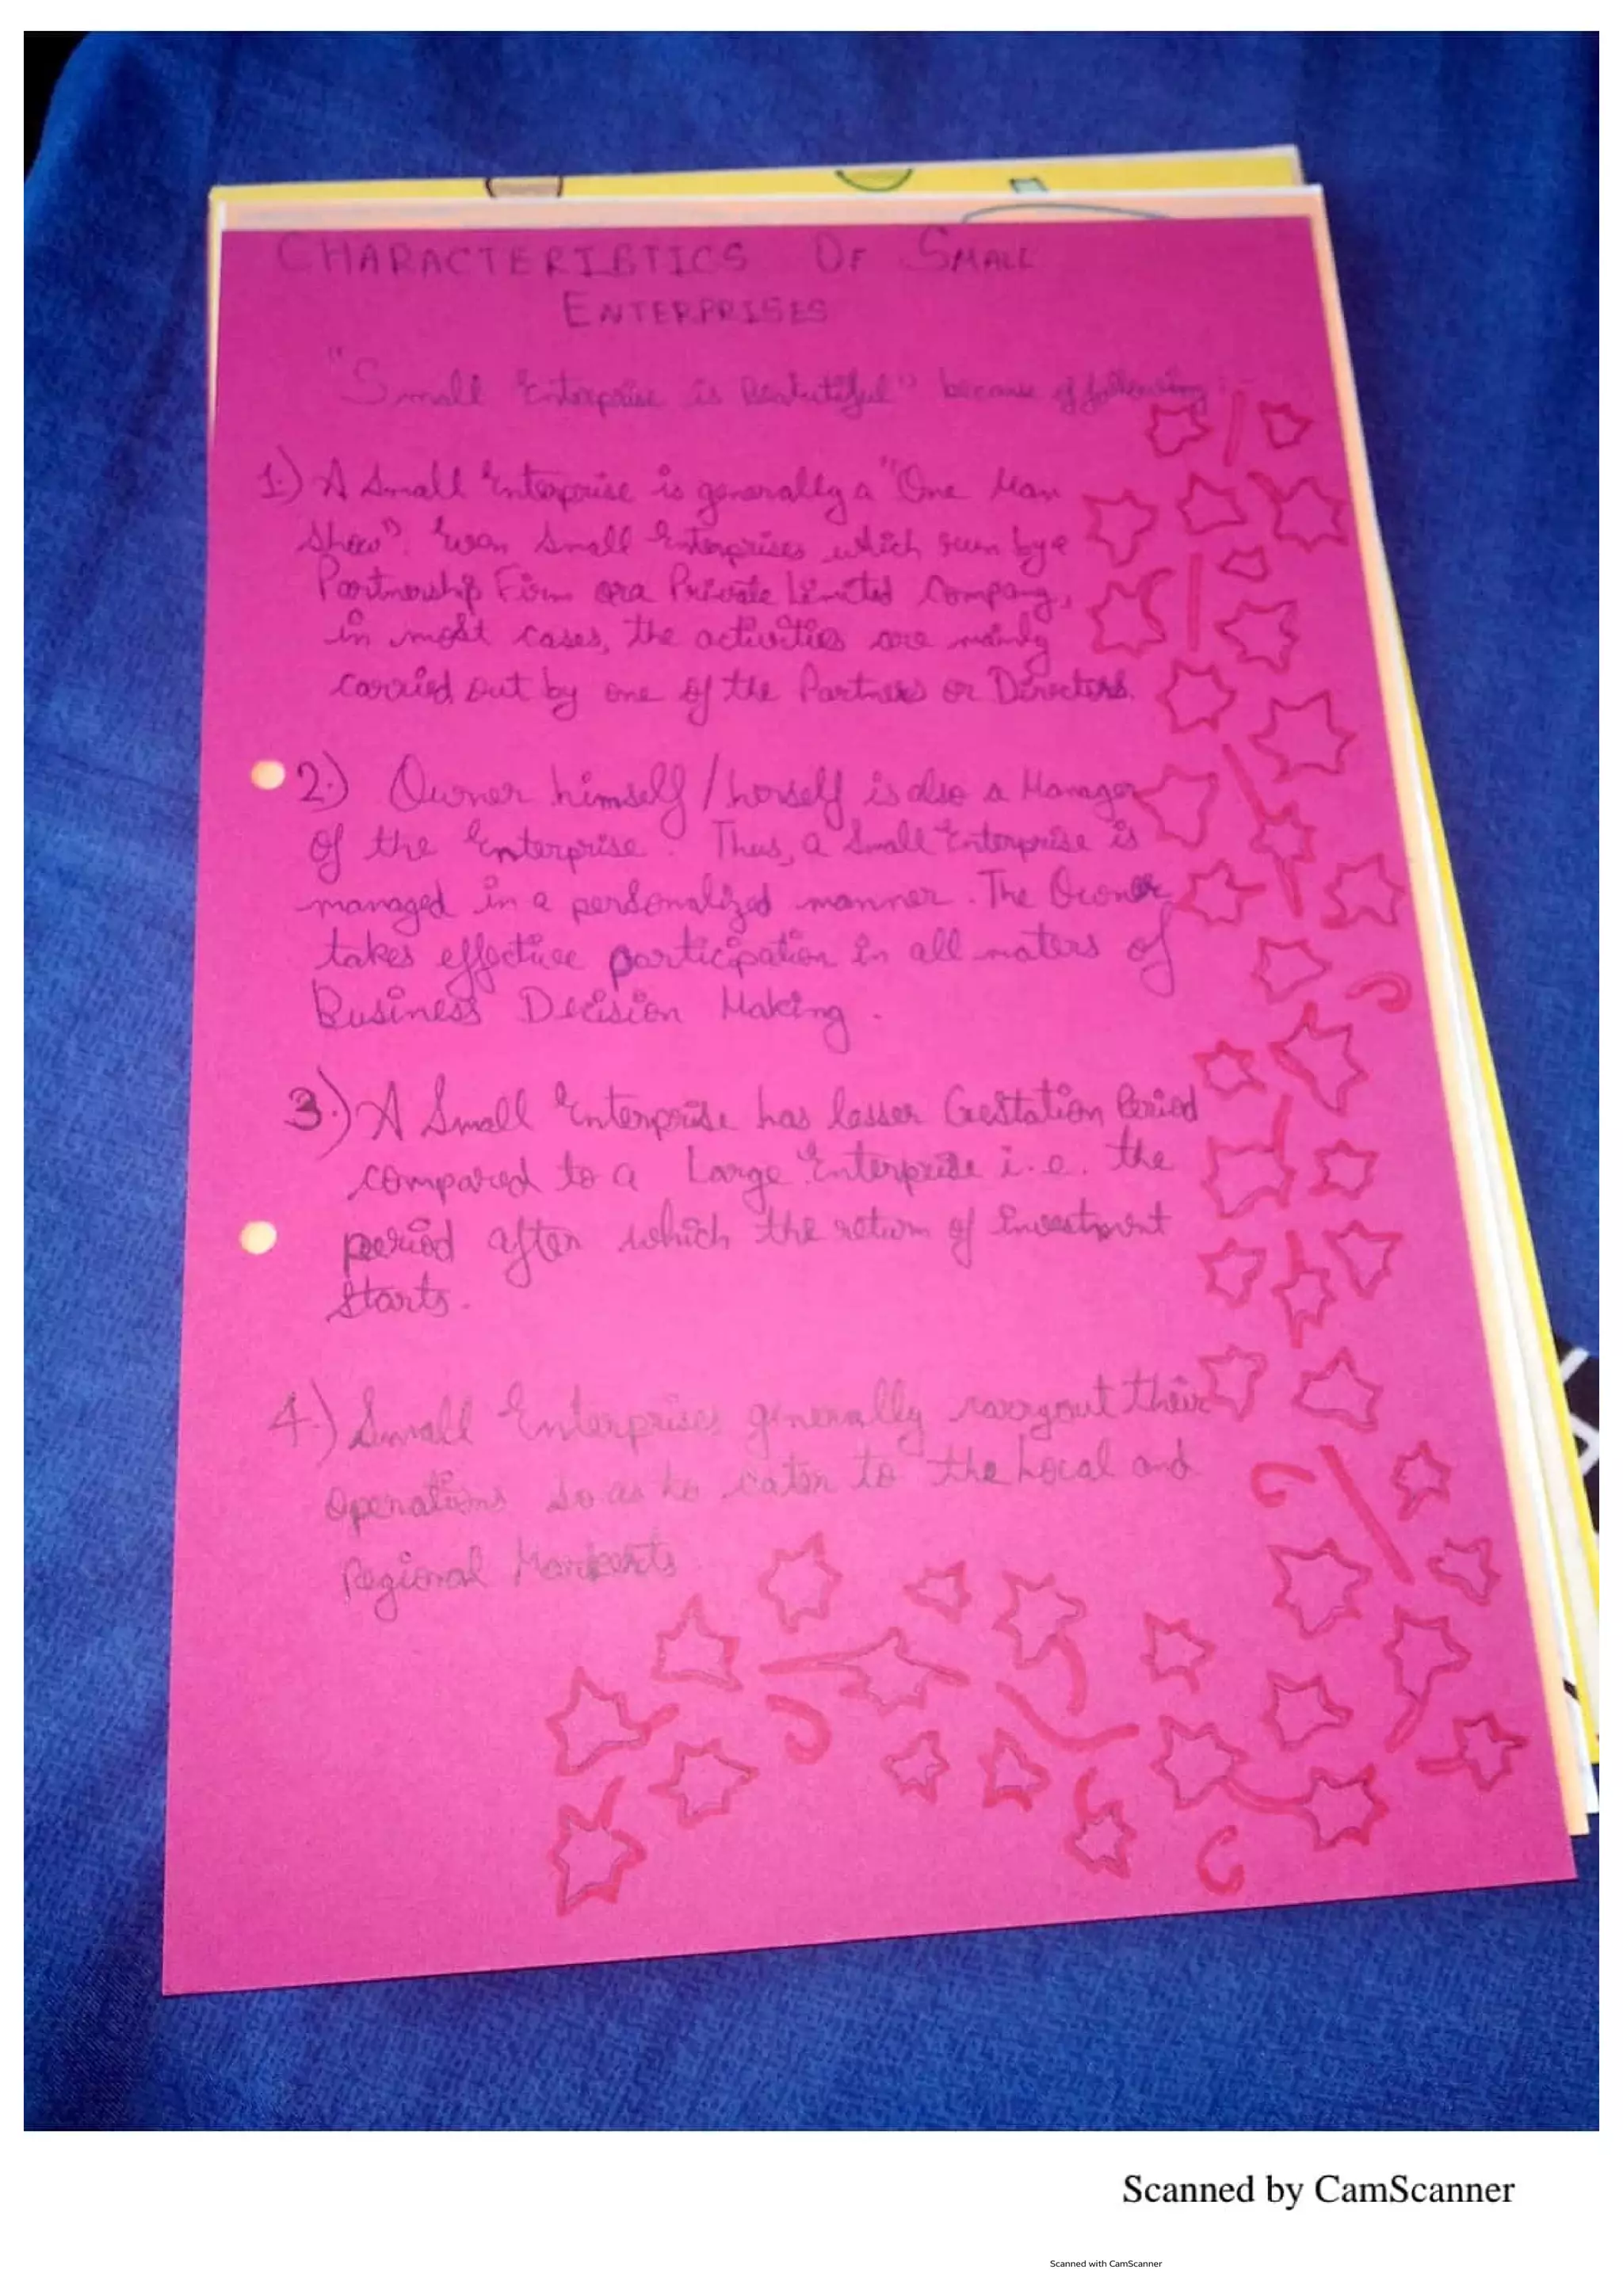 CHARACTERISTICS OF SMALL
ENTERPRISES
"Small Enterprise is Beautiful" because of following :-
1.) A Small Enterprise is generally a "One Man
Show". Even Small Enterprises which run by a
Partnership Firm or a Private Limited Company,
in most cases, the activities are mainly
carried out by one of the Partners or Directors.
2.) Owner himself / herself is also a Manager
of the Enterprise. Thus, a Small Enterprise is
managed in a personalized manner. The Owner
takes effective participation in all maters of
Business Decision Making.
3.) A Small Enterprise has lesser Gestation Period
compared to a Large Enterprise i.e. the
period after which the return of investment
starts.
4.) Small Enterprises generally carryout their
Operations so as to cater to the Local and
Regional Markets.
Scanned by CamScanner
Scanned with CamScanner